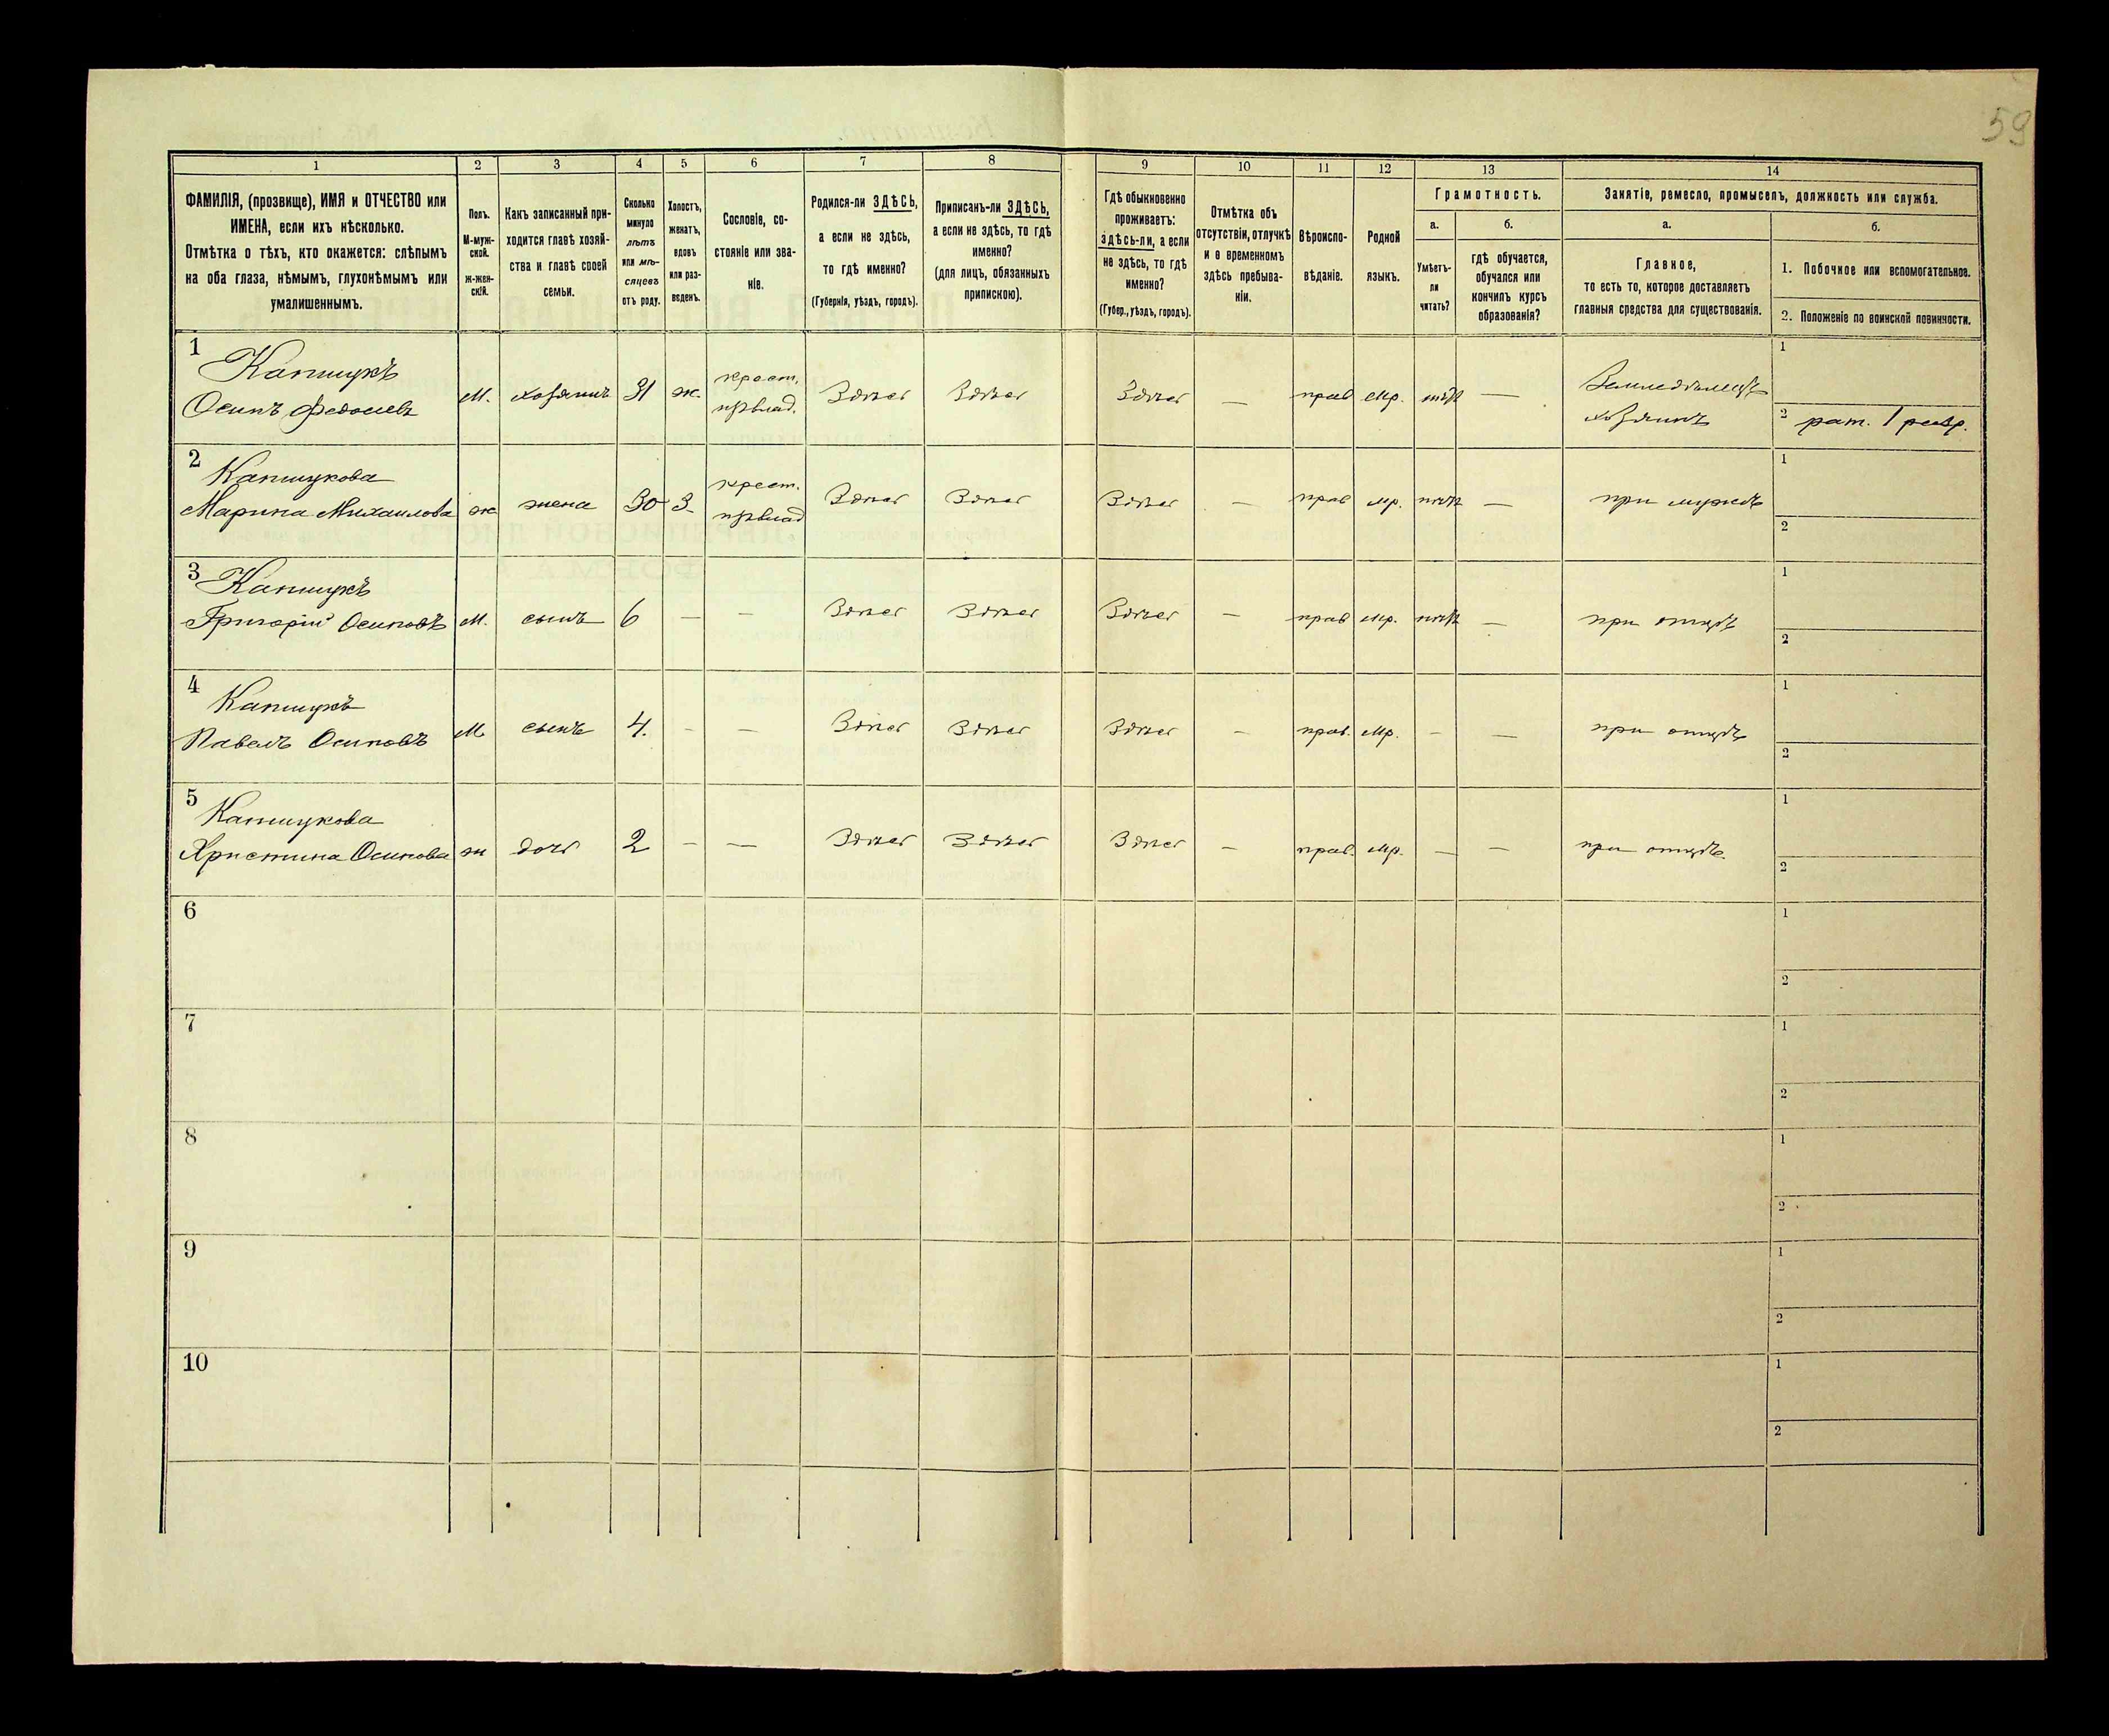 59
1 2 3 4 5 6 7 8 9 10 11 12 13 14
ФАМИЛІЯ, (прозвище), ИМЯ и ОТЧЕСТВО или
ИМЕНА, если ихъ нѣсколько.
Отмѣтка о тѣхъ, кто окажется: слѣпымъ
на оба глаза, нѣмымъ, глухонѣмымъ или
умалишеннымъ.
Полъ.
М-муж-
ской.
Ж-жен-
скій.
Какъ записанный при-
ходится главѣ хозяй-
ства и главѣ своей
семьи.
Сколько
минуло
лѣтъ
или мѣ-
сяцевъ
отъ роду.
Холостъ,
женатъ,
вдовъ
или раз-
веденъ.
Сословіе, со-
стояніе или зва-
ніе.
Родился-ли ЗДѢСЬ,
а если не здѣсь,
то гдѣ именно?
(Губернія, уѣздъ, городъ).
Приписанъ-ли ЗДѢСЬ,
а если не здѣсь, то гдѣ
именно?
(для лицъ, обязанныхъ
припискою).
Гдѣ обыкновенно
проживаетъ:
здѣсь-ли, а если
не здѣсь, то гдѣ
именно?
(Губер., уѣздъ, городъ).
Отмѣтка объ
отсутствіи, отлучкѣ
и о временномъ
здѣсь пребыва-
ніи.
Вѣроиспо-
вѣданіе.
Родной
языкъ.
Грамотность.
а.
Умѣетъ-
ли
читать?
б.
гдѣ обучается,
обучался или
кончилъ курсъ
образованія?
Занятіе, ремесло, промыселъ, должность или служба.
а.
Главное,
то есть то, которое доставляетъ
главныя средства для существованія.
б.
1. Побочное или вспомогательное.
2. Положеніе по воинской повинности.
1
Капшукъ
Осипъ Федосіевъ
М. хозяинъ 31 ж.
крест.
Здѣсь Здѣсь Здѣсь — прав мр. нѣтъ —
Земледѣлецъ
хозяинъ
1
2 рат. 1 разр.
2
Капшукова
Марина Михаилова ж жена 30 З.
крест.
Здѣсь Здѣсь Здѣсь — прав мр. нѣтъ — при мужѣ
1
2
3 Капшукъ
Григорій Осиповъ М. сынъ 6 — — Здѣсь Здѣсь Здѣсь — прав мр. нѣтъ — при отцѣ
1
2
4
Капшукъ
Павелъ Осиповъ М сынъ 4. - — Здѣсь Здѣсь Здѣсь — прав. мр. - — при отцѣ
1
2
5
Капшукова
Христина Осипова ж дочь 2 - — Здѣсь Здѣсь Здѣсь — прав. мр. — — при отцѣ.
1
2
6
1
2
7
1
2
8
1
2
9
1
2
10
1
2